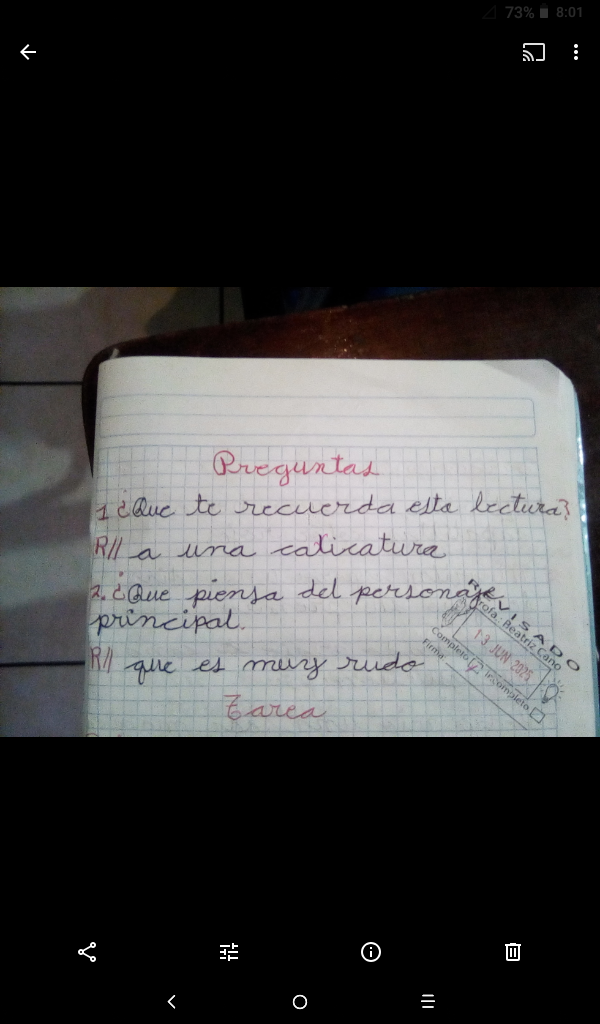 73% 8:01
Preguntas
1 ¿Que te recuerda esta lectura?
R// a una caricatura
2. ¿Que piensa del personaje
principal.
R// que es muy rudo
REVISADO
Profa. Beatriz Cano
13 JUN 2025
Completo Incompleto
Firma
Tarea